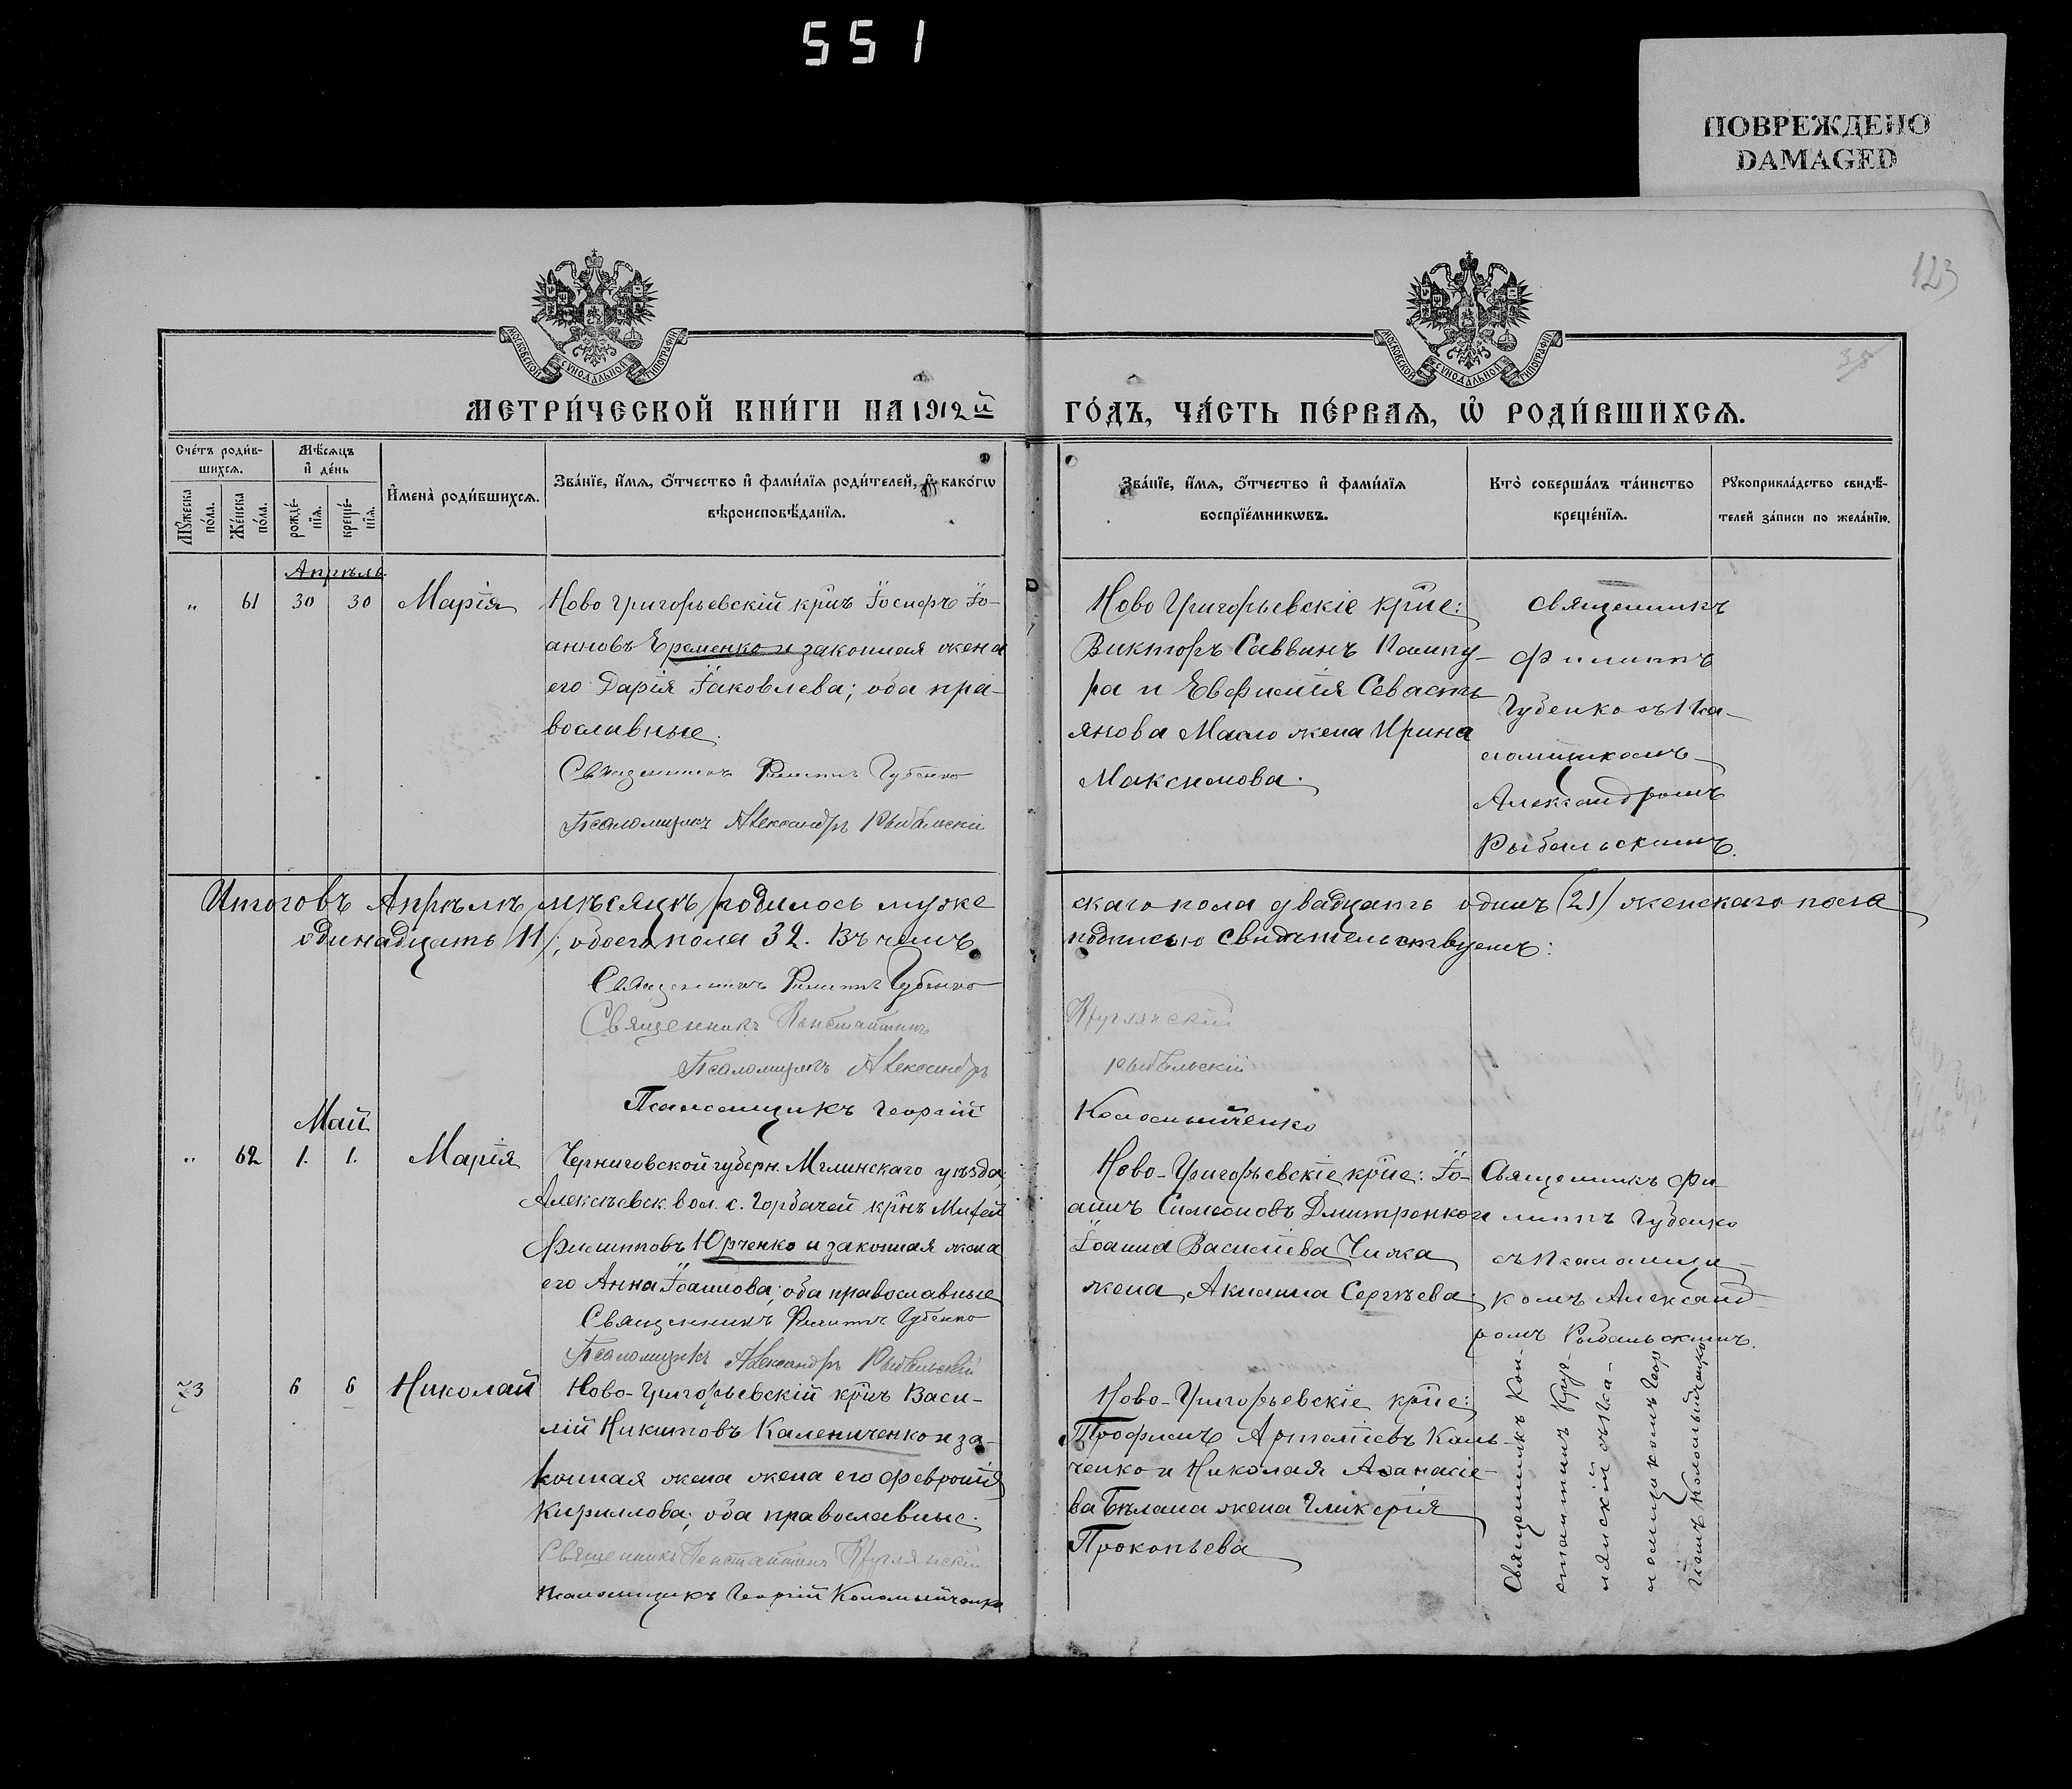 551
ПОВРЕЖДЕНО
DAMAGED
123
38
МОСКОВСКОЙ СѴНОДАЛЬНОЙ ТИПОГРАФІИ
МОСКОВСКОЙ СѴНОДАЛЬНОЙ ТИПОГРАФІИ
МЕТРИ́ЧЕСКОЙ КНИ́ГИ НА 1912й
ГО́ДЪ, ЧА́СТЬ ПЕ́РВАѦ, Ѡ҆ РОДИ́ВШИХСѦ.
Сче́тъ роди́в-
шихсѧ.
Мꙋ́жеска
по́ла.
Же́нска
по́ла.
Мѣ́сѧцъ
и҆ де́нь
рожде́-
нїѧ.
креще́-
нїѧ.
И҆мена̀ роди́вшихсѧ.
Зва́нїе, и҆́мѧ, о҆́тчество и҆ фами́лїѧ роди́телей, и҆ како́гѡ
вѣроисповѣ́данїѧ.
Зва́нїе, и҆́мѧ, о҆́тчество и҆ фами́лїѧ
воспрїе́мникѡвъ.
Кто̀ соверша́лъ та́инство
креще́нїѧ.
Рꙋкоприкла́дство свидѣ́-
телей за́писи по жела́нїю.
Апрѣль
" 61 30 30 Марія
Ново Григорьевскій кр̃нъ Іосифъ Іо-
анновъ Еременко и законная жена
его Дарія Іаковлева; оба пра-
вославные.
Священникъ Филиппъ Губенко
Псаломщикъ Александръ Рыбальскій
Ново Григорьевскіе кр̃не:
Викторъ Саввинъ Кашпу-
ра и Евфимія Севасть
янова Масло жена Ирина
Максимова.
Священникъ
Филиппъ
Губенко съ Пса-
ломщикомъ
Александромъ
Рыбальскимъ.
Итого въ Апрѣлѣ мѣсяцѣ родилось муже
скаго пола двадцать одинъ (21) женскаго пола
одинадцать (11); обоего пола 32. Въ чемъ
подписью свидѣтельствуемъ:
Священникъ Филиппъ Губенко
Священникъ Константинъ Круглянскій
Псаломщикъ Александръ Рыбальскій
Псаломщикъ Георгій Коломыйченко
Май
" 62 1. 1. Марія
Черниговской губерн. Мглинскаго уѣзда
Алексѣевск. вол. с. Горбачей кр̃нъ Миѳей
Филипповъ Юрченко и законная жена
его Анна Іоаннова; оба православные
Священникъ Филиппъ Губенко
Псаломщикъ Александръ Рыбальскій
Ново-Григорьевскіе кр̃не: Іо-
аннъ Симеоновъ Дмитренко и
Іоанна Василіева Чижа
жена Акилина Сергѣева
Священникъ Фи
липпъ Губенко
съ Псаломщи-
комъ Александ-
ромъ Рыбальскимъ.
73 6 6 Николай
Ново-Григорьевскій кр̃нъ Васи-
лій Никитовъ Калениченко и за-
конная жена жена его Февронія
Кириллова; оба православные.
Священникъ Константинъ Круглянскій
Псаломщикъ Георгій Коломыйченко
Ново-Григорьевскіе кр̃не:
Трофимъ Артеміевъ Каль-
ченко и Николая Аѳанасіе-
ва Бѣлана жена Гликерія
Прокопьева
Священникъ Кон-
стантинъ Круг-
лянскій съ Пса-
ломщикомъ Геор
гіемъ Коломыйченко